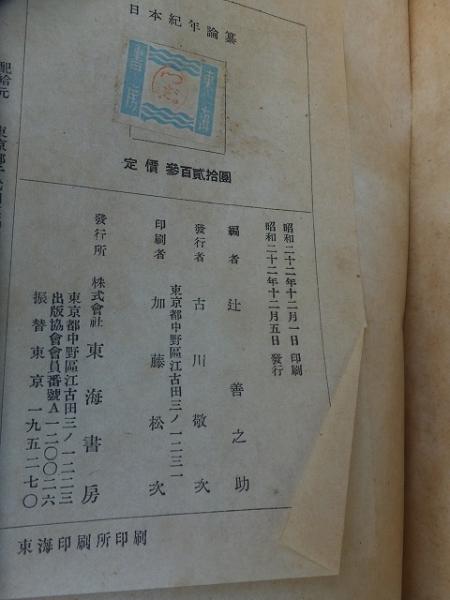 日本紀年論纂
東海
書房
定價 參百貳拾圓
昭和二十二年十二月一日 印刷
昭和二十二年十二月五日 發行
編者 辻善之助
發行者 古川敬次
東京都中野區江古田三ノ一二三一
印刷者 加藤松次
發行所 株式會社 東海書房
東京都中野區江古田三ノ一二二三
出版協會會員番號A一二〇〇二六
振替東京一九五二七〇
配給元 東京都千代田區
東海印刷所印刷